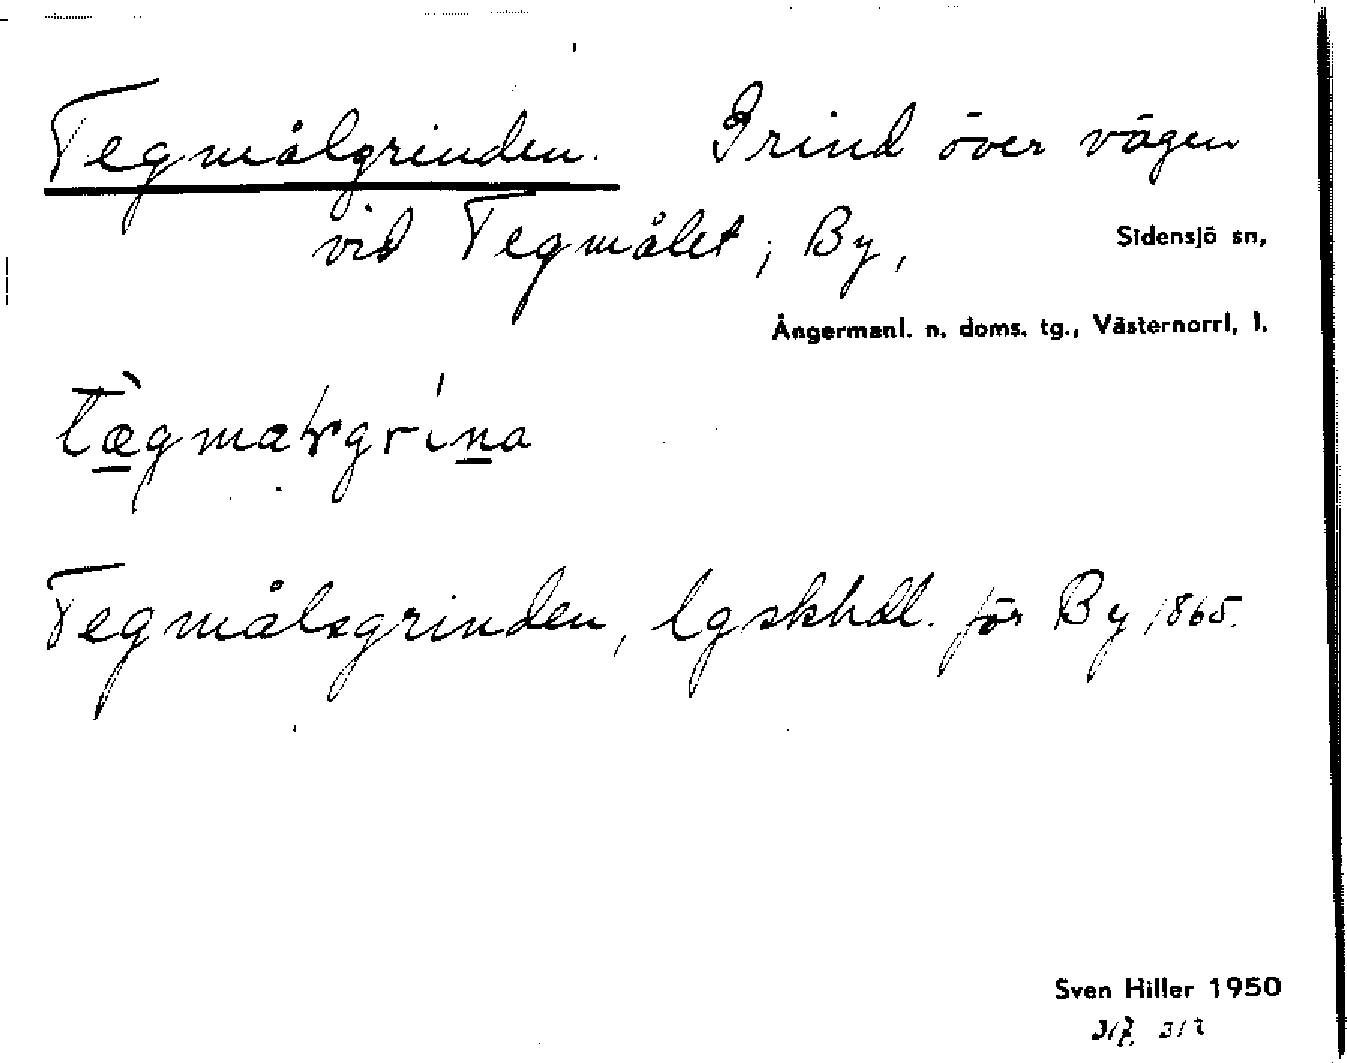 Tegmålgrinden. Grind över vägen
vid Tegmålet, By, Sidensjö sn,
Ångermanl. n. doms. tg., Västernorrl. l.
Tegmålsgrinden, lgskhdl. för By 1865.
Sven Hiller 1950